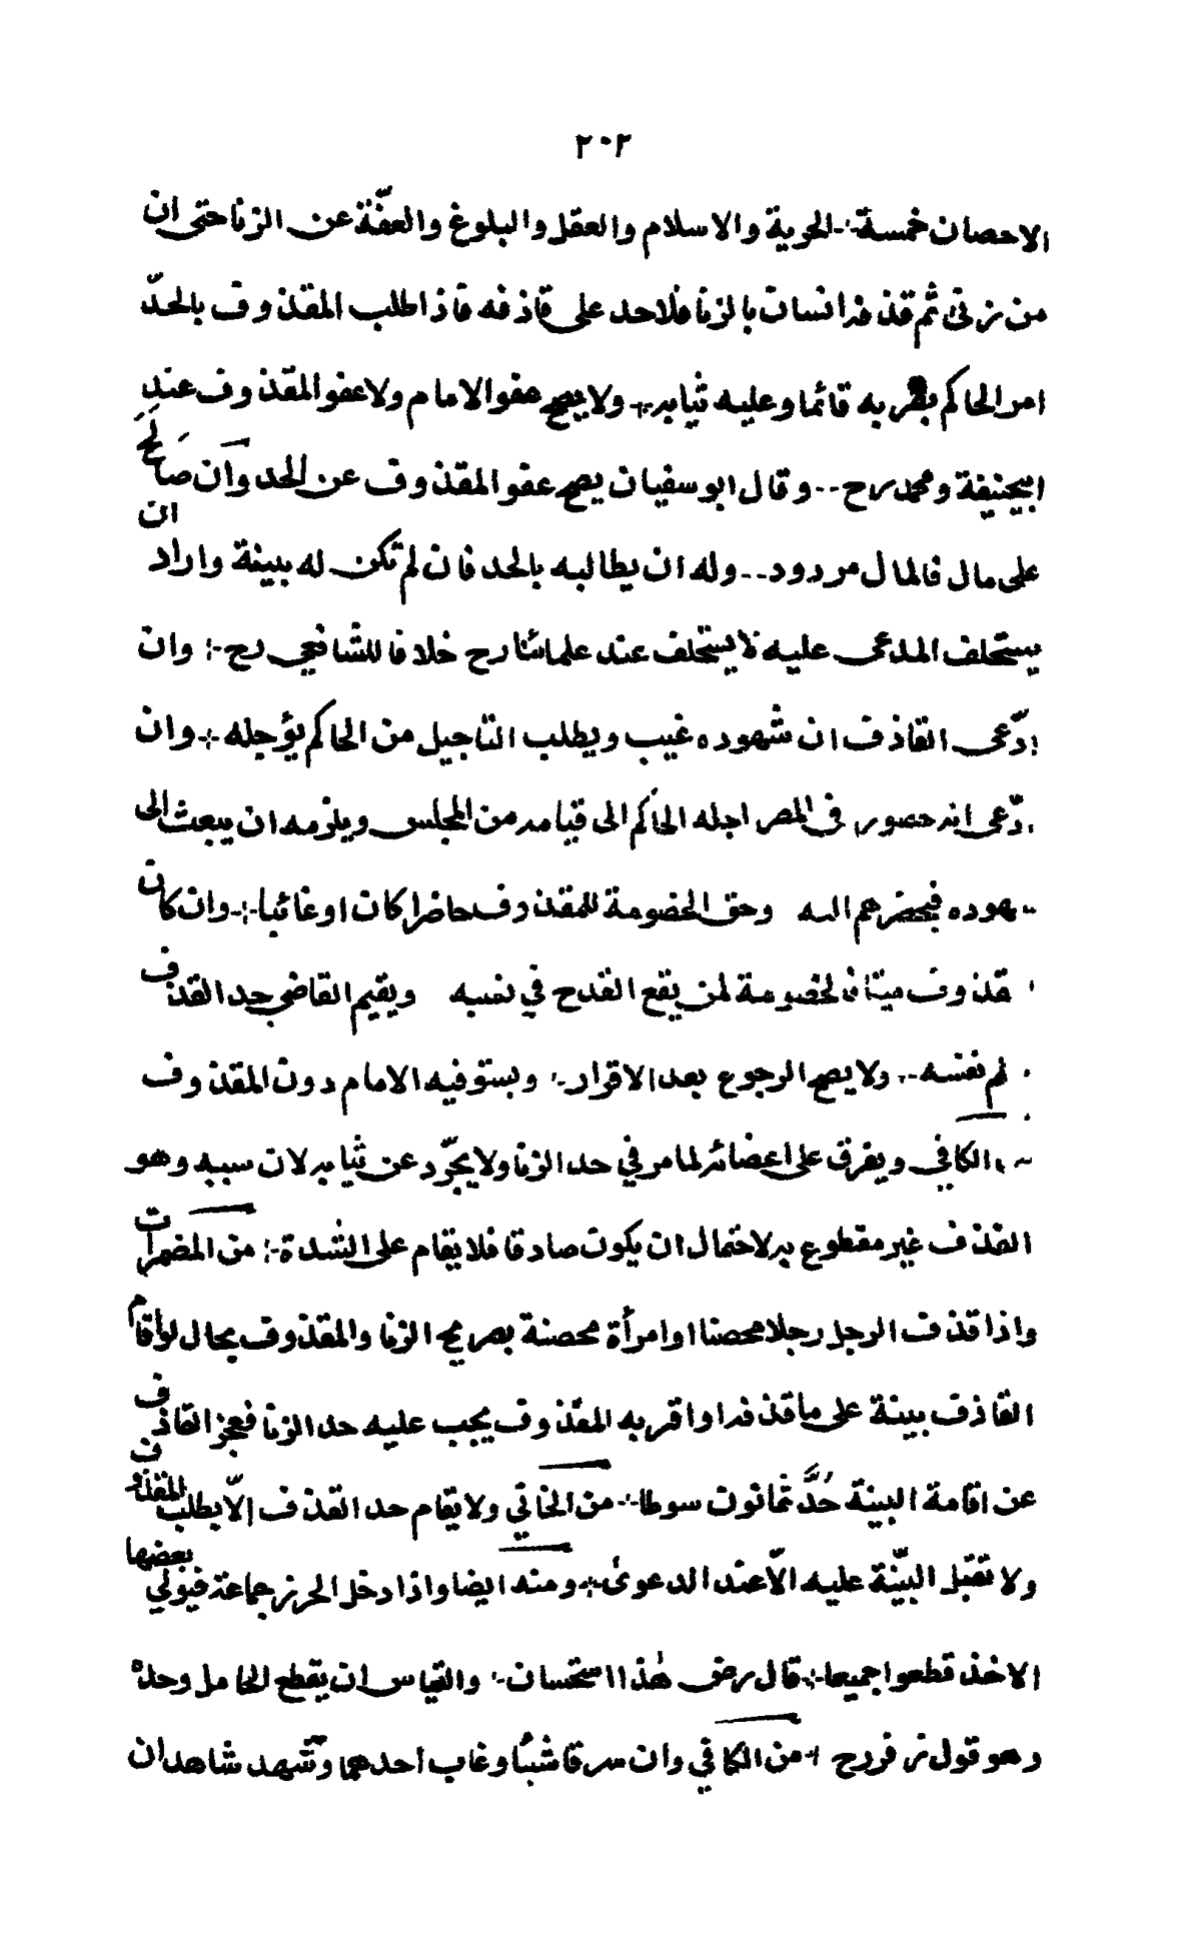 ٢٠٢
الاحصان خمسة ∴ الحرية والاسلام والعقل والبلوغ والعفّة عن الزنا حتى ان
من زنى ثم قذفه انسان بالزنا فلا حد على قاذفه فاذا طلب المقذوف بالحدّ
امر الحاكم بضربه قائما وعليه ثيابه ∴ ولا يصح عفو الامام ولا عفو المقذوف عند
ابيحنيفة ومحمد رح ∴ وقال ابو سفيان يصح عفو المقذوف عن الحد وان صالح
على مال فالمال مردود ∴ وله ان يطالبه بالحد فان لم تكن له بينة واراد ان
يستحلف المدعى عليه لا يستحلف عند علمائنا رح خلافا للشافعي رح ∴ وان
ادّعى القاذف ان شهوده غيب ويطلب التاجيل من الحاكم يؤجله ∴ وان
ادّعى انه حضور في المصر اجله الحاكم الى قيامه من المجلس ويلزمه ان يبعث الى
شهوده فيحضرهم اليه وحق الخصومة للمقذوف حاضرا كان او غائبا ∴ وان كان
قذوف ميتا فالخصومة لمن يقع القدح في نسبه ويقيم القاضي حد القذف
لم نفسه ∴ ولا يصح الرجوع بعد الاقرار ∴ ويستوفيه الامام دون المقذوف
الكافي ويفرق على اعضائه لما مر في حد الزنا ولا يجرّد عن ثيابه لان سببه وهو
القذف غير مقطوع به لاحتمال ان يكون صادقا فلا يقام على الشدة ∴ من المضمرات
واذا قذف الرجل رجلا محصنا او امرأة محصنة بصريح الزنا والمقذوف بحال لو اقام
القاذف بينة على ما قذفه او اقر به المقذوف يجب عليه حد الزنا فعجز القاذف
عن اقامة البينة حُدَّ ثمانون سوطا ∴ من الخاني ولا يقام حد القذف الّا بطلب المقذوف
ولا تقبل البيّنة عليه الّا عند الدعوىٰ ∴ ومنه ايضا واذا دخل الحرز جماعة فيولي بعضها
الاخذ قطعوا جميعا ∴ قال رض هٰذا استحسان ∴ والقياس ان يقطع الحامل وحده
وهو قول زفر رح ∴ من الكافي وان سرقا شيئًا وغاب احدهما وشهد شاهدان